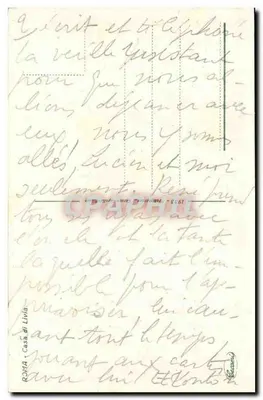 écrit et téléphoné
la veille insistant
pour que nous al-
lions déjeuner avec
eux, nous y mmes
allés, Lucien et moi
seulement. René prend
tous avec
l'oncle et la tante
laquelle fait l'im-
possible pour l'ap-
privoiser, lui cau-
sant tout le temps
jouant aux cart
avec lui
ROMA - Casa di Livia